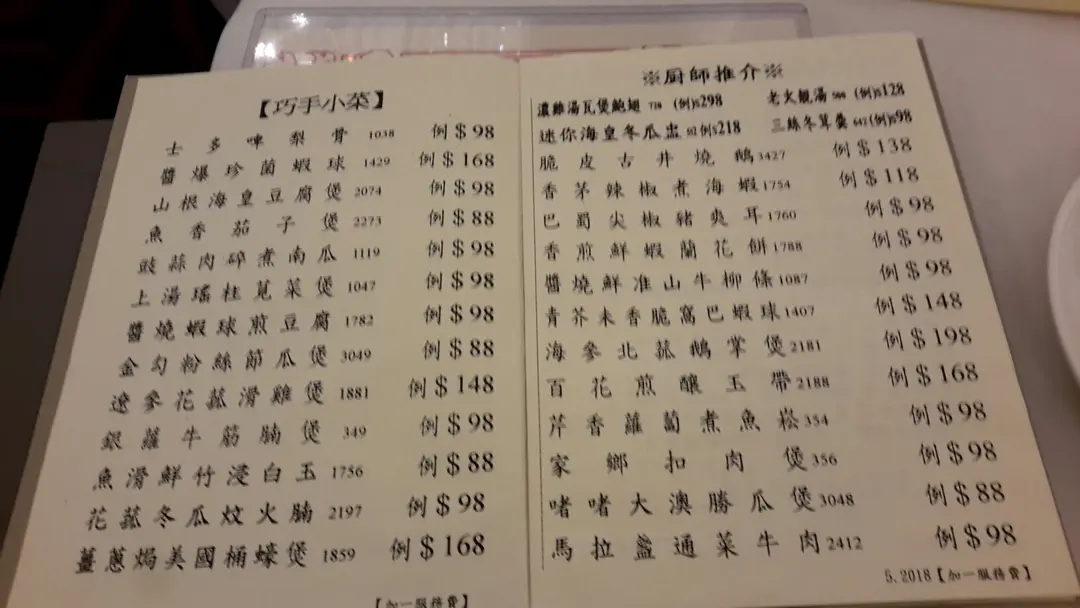 【巧手小菜】
士多啤梨骨 1038 例$98
醬爆珍菌蝦球 1429 例$168
山根海皇豆腐煲 2074 例$98
魚香茄子煲 2273 例$88
豉蒜肉碎煮南瓜 1119 例$98
上湯瑤柱莧菜煲 1047 例$98
醬燒蝦球煎豆腐 1782 例$98
金勾粉絲節瓜煲 3049 例$88
遼參花菰滑雞煲 1881 例$148
銀蘿牛筋腩煲 349 例$98
魚滑鮮竹浸白玉 1756 例$88
花菰冬瓜炆火腩 2197 例$98
薑蔥焗美國桶蠔煲 1859 例$168
【加一服務費】
※厨師推介※
濃雞湯瓦煲鮑翅 720 (例)$298 老火靚湯 500 (例)$128
迷你海皇冬瓜盅 82 例$218 三絲冬茸羹 642 (例)$98
脆皮古井燒鵝 3427 例$138
香茅辣椒煮海蝦 1754 例$118
巴蜀尖椒豬爽耳 1760 例$98
香煎鮮蝦蘭花餅 1788 例$98
醬燒鮮准山牛柳條 1087 例$98
青芥末香脆窩巴蝦球 1407 例$148
海參北菰鵝掌煲 2181 例$198
百花煎釀玉帶 2188 例$168
芹香蘿蔔煮魚崧 354 例$98
家鄉扣肉煲 356 例$98
啫啫大澳勝瓜煲 3048 例$88
馬拉盞通菜牛肉 2412 例$98
5.2018【加一服務費】